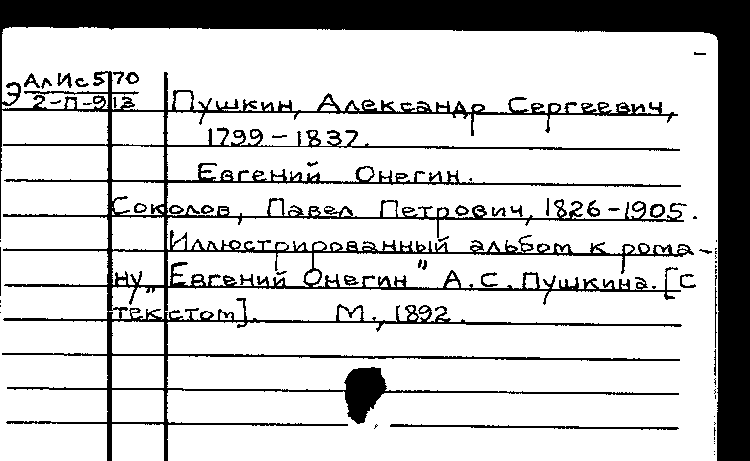 Э АлИс 5/70
2-П-913
Пушкин, Александр Сергеевич,
1799-1837.
Евгений Онегин.
Соколов, Павел Петрович, 1826-1905.
Иллюстрированный альбом к рома-
ну „Евгений Онегин" А.С. Пушкина. [С
текстом]. М., 1892.